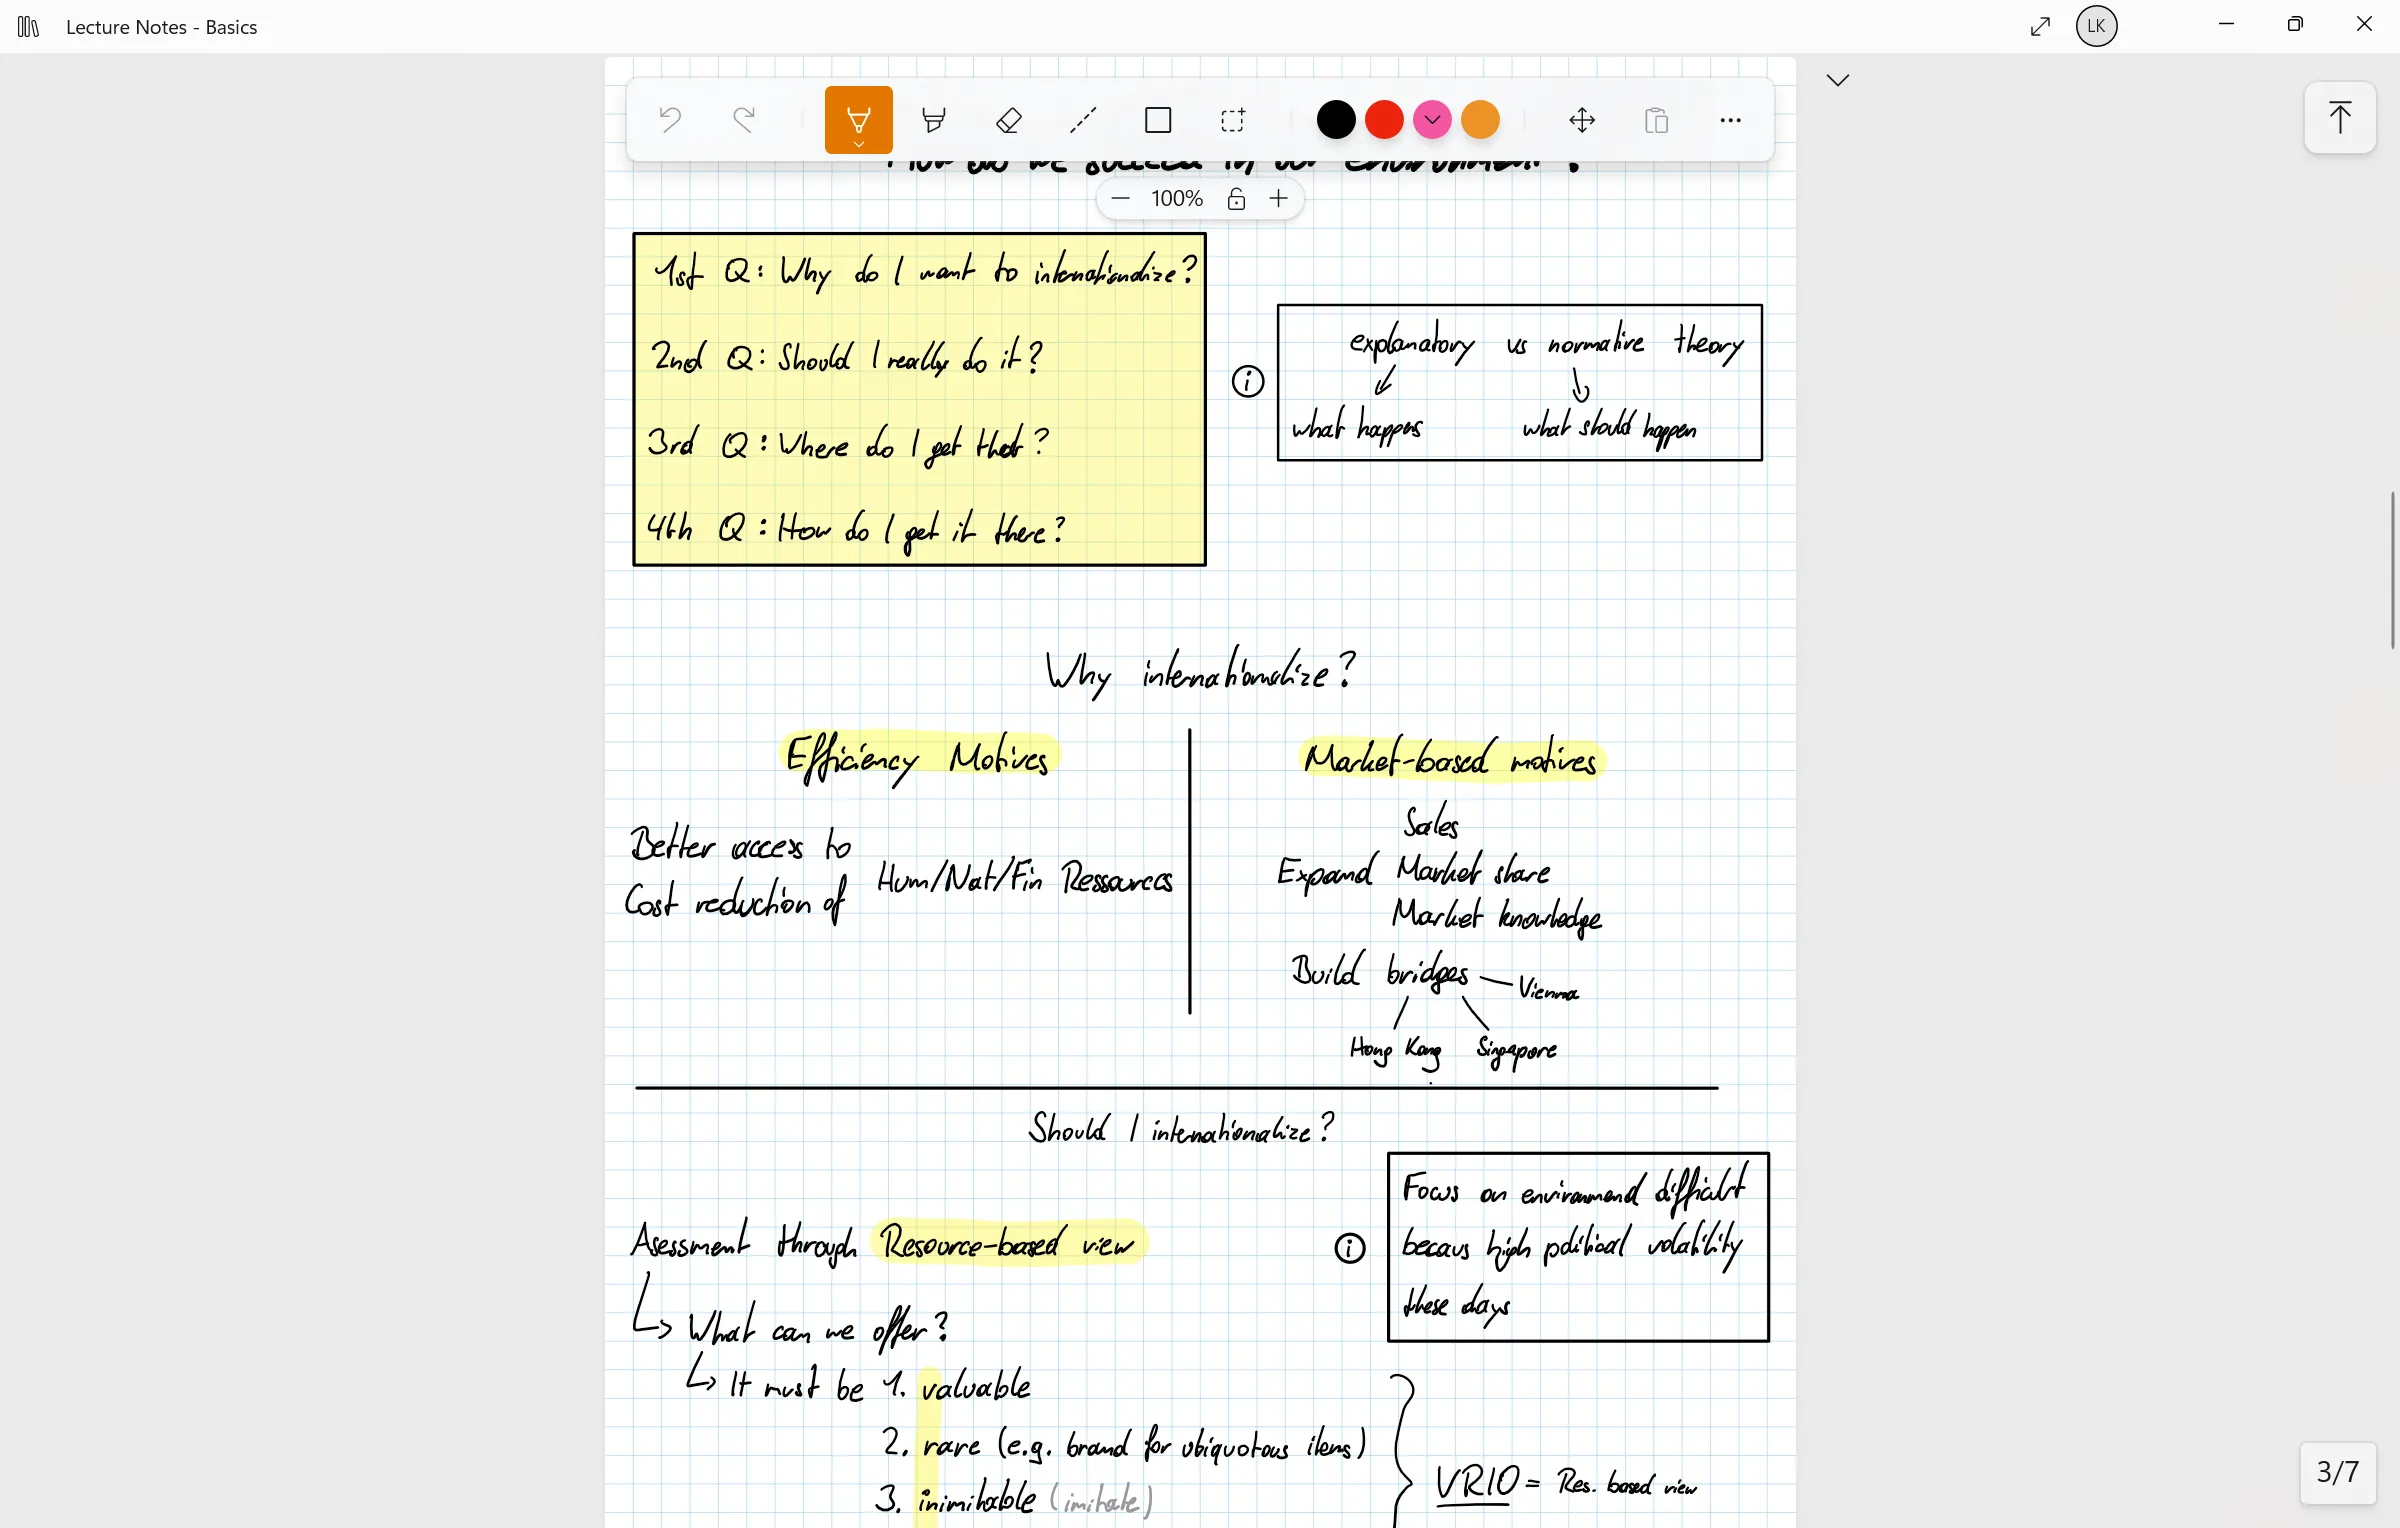 Lecture Notes - Basics
LK
How do we succeed in our environment?
100%
1st Q: Why do I want to internationalize?
2nd Q: Should I really do it?
3rd Q: Where do I get that?
4th Q: How do I get it there?
explanatory vs normative theory
what happens
what should happen
Why internationalize?
Efficiency Motives
Better access to
Cost reduction of
Hum/Nat/Fin Ressources
Market-based motives
Sales
Expand Market share
Market knowledge
Build bridges
Vienna
Hong Kong
Singapore
Should I internationalize?
Asessment through Resource-based view
Focus on environmend difficult
becaus high political volatility
these days
What can we offer?
It must be 1. valuable
2. rare (e.g. brand for ubiquotous items)
3. inimitable (imitate)
VRIO = Res. based view
3/7